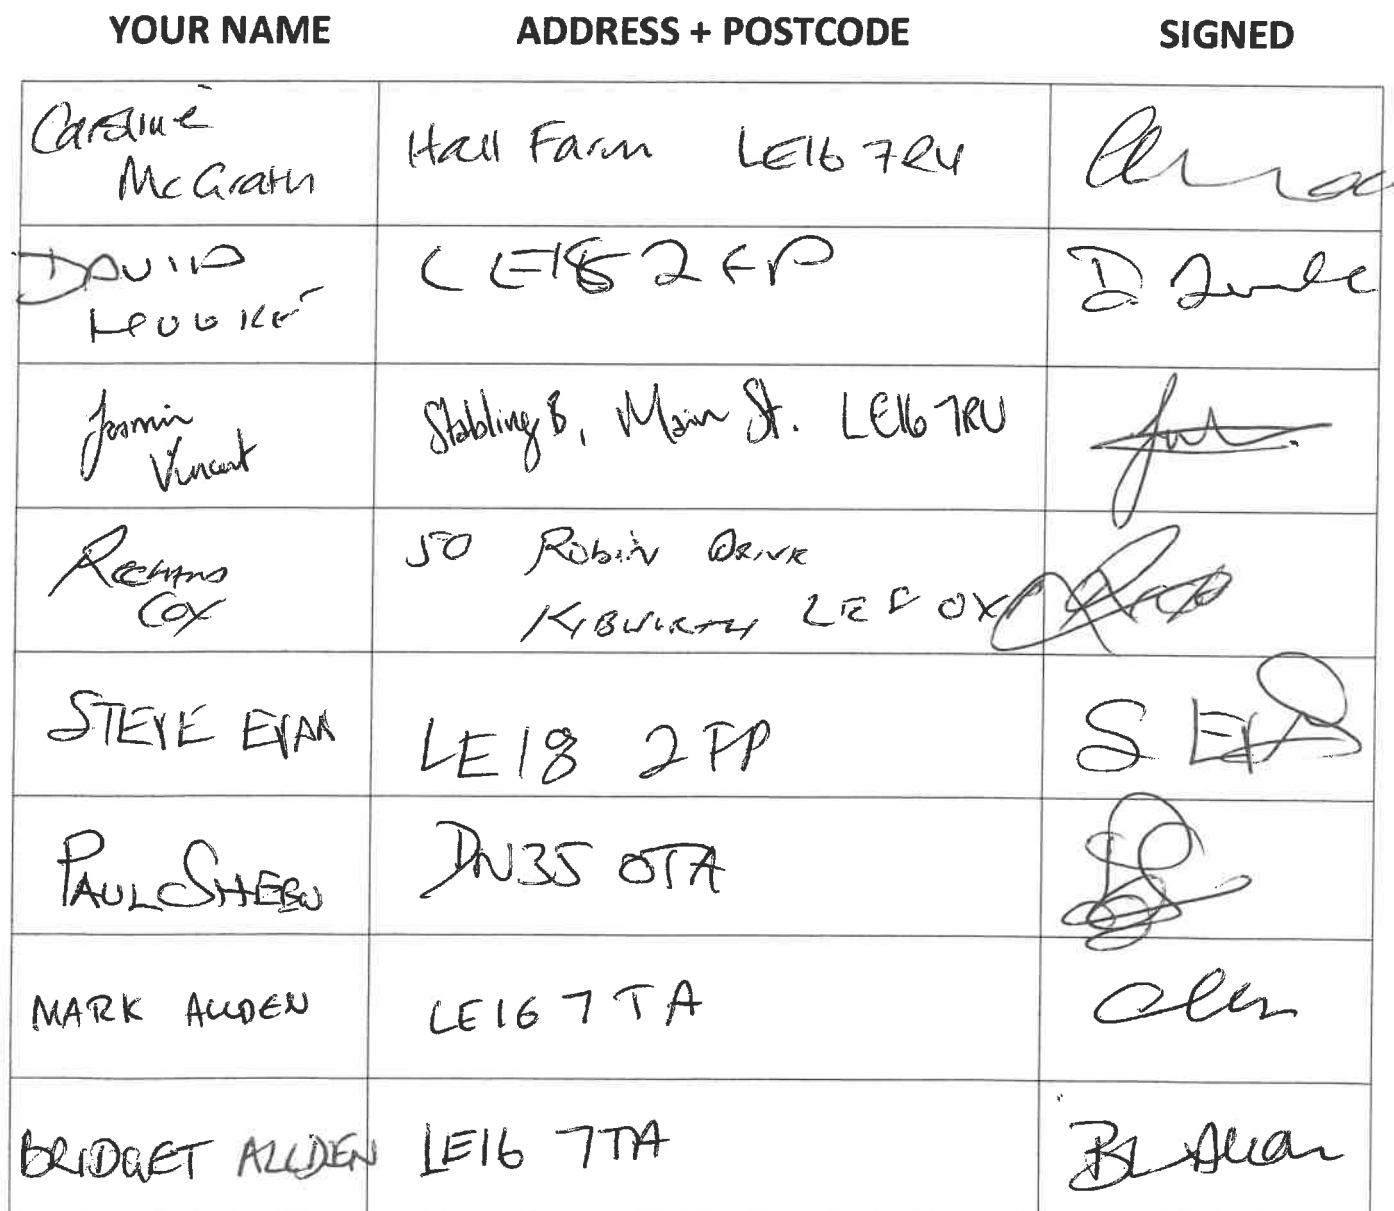 YOUR NAME ADDRESS + POSTCODE SIGNED
Caroline
McGrath
Hall Farm LE16 7RU
DAVID
LE18 2FP
D.
Jasmin
Vincent
Stabling B, Main St. LE16 7RU
RICHARD
COX
50 ROBIN DRIVE
KIBWORTH LE8 0X
STEVE EVAN
LE18 2FP
S
PAUL
DN35 0TA
MARK ALLDEN
LE16 7TA
BRIDGET ALLDEN
LE16 7TA